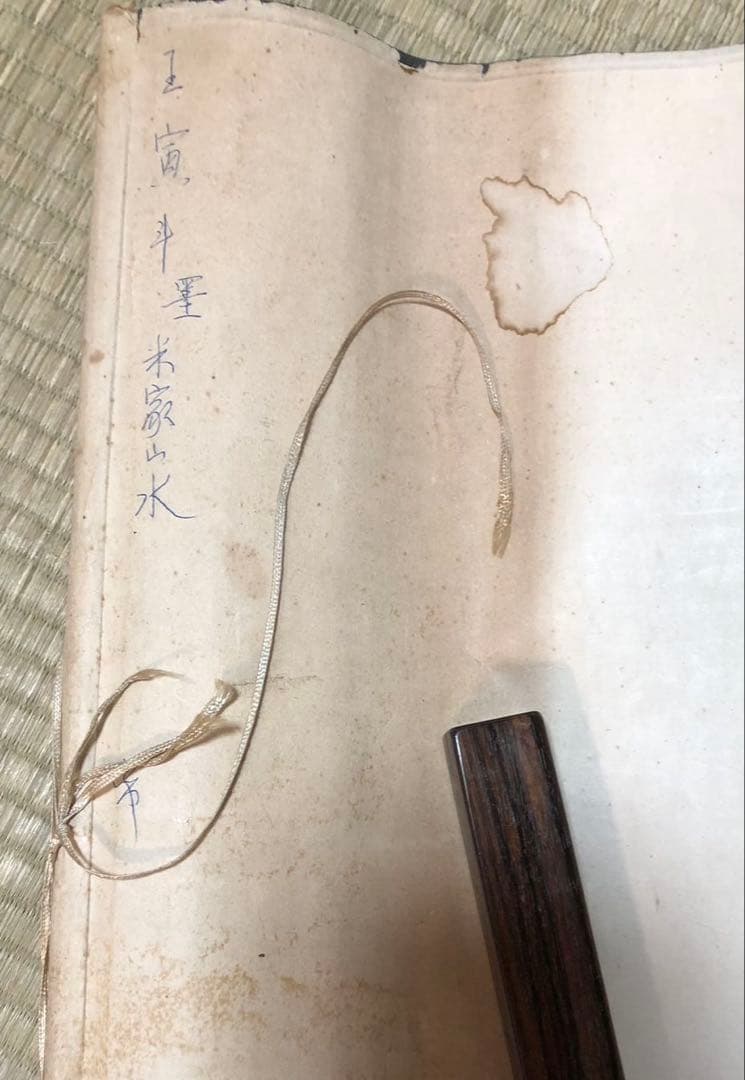 王寅斗墨米家山水